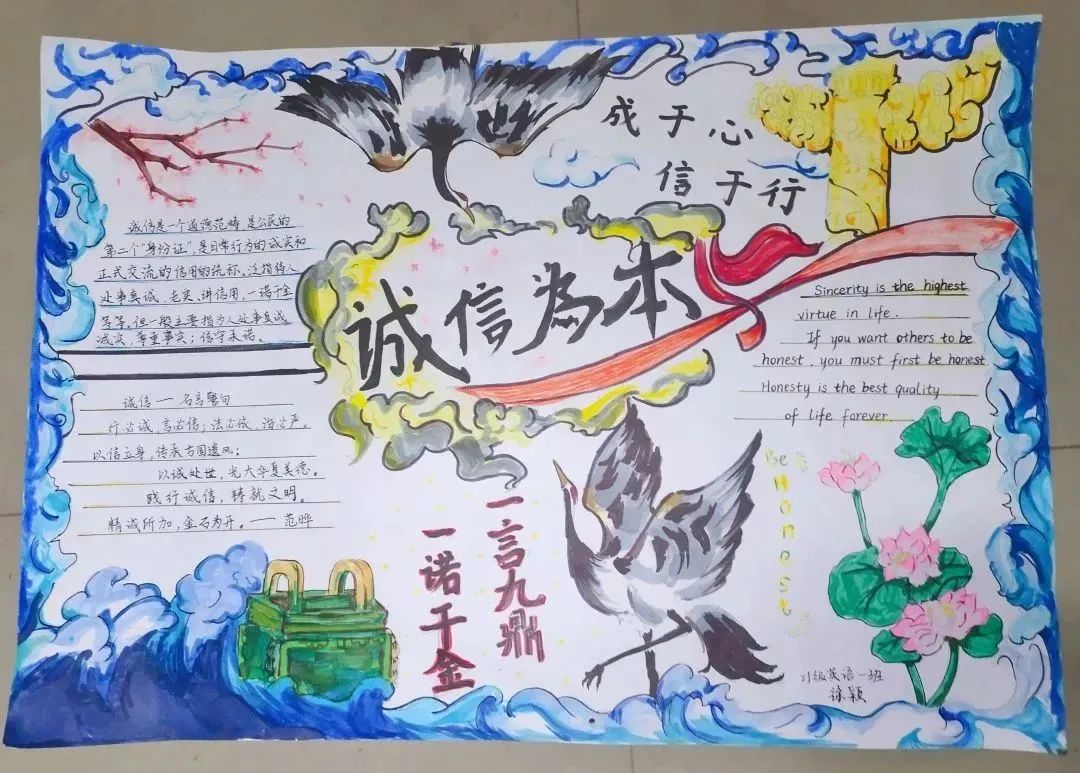 成于心
信于行
诚信为本
诚信是一个道德范畴,是公民的
第二个"身份证",是日常行为的诚实和
正式交流的信用的统称。泛指待人
处事真诚、老实、讲信用,一诺千金
等等。但一般主要指为人处事真诚
诚实,尊重事实;信守承诺。
诚信——名言警句
行必诚,言必信;法必依,治必严。
以信立身,传承古国遗风;
以诚处世,光大华夏美德。
践行诚信,铸就文明。
精诚所加,金石为开。——范晔
Sincerity is the highest
virtue in life.
If you want others to be
honest, you must first be honest
Honesty is the best quality
of life forever
一言九鼎
一诺千金
Be Honest
21级英语一班
徐颖